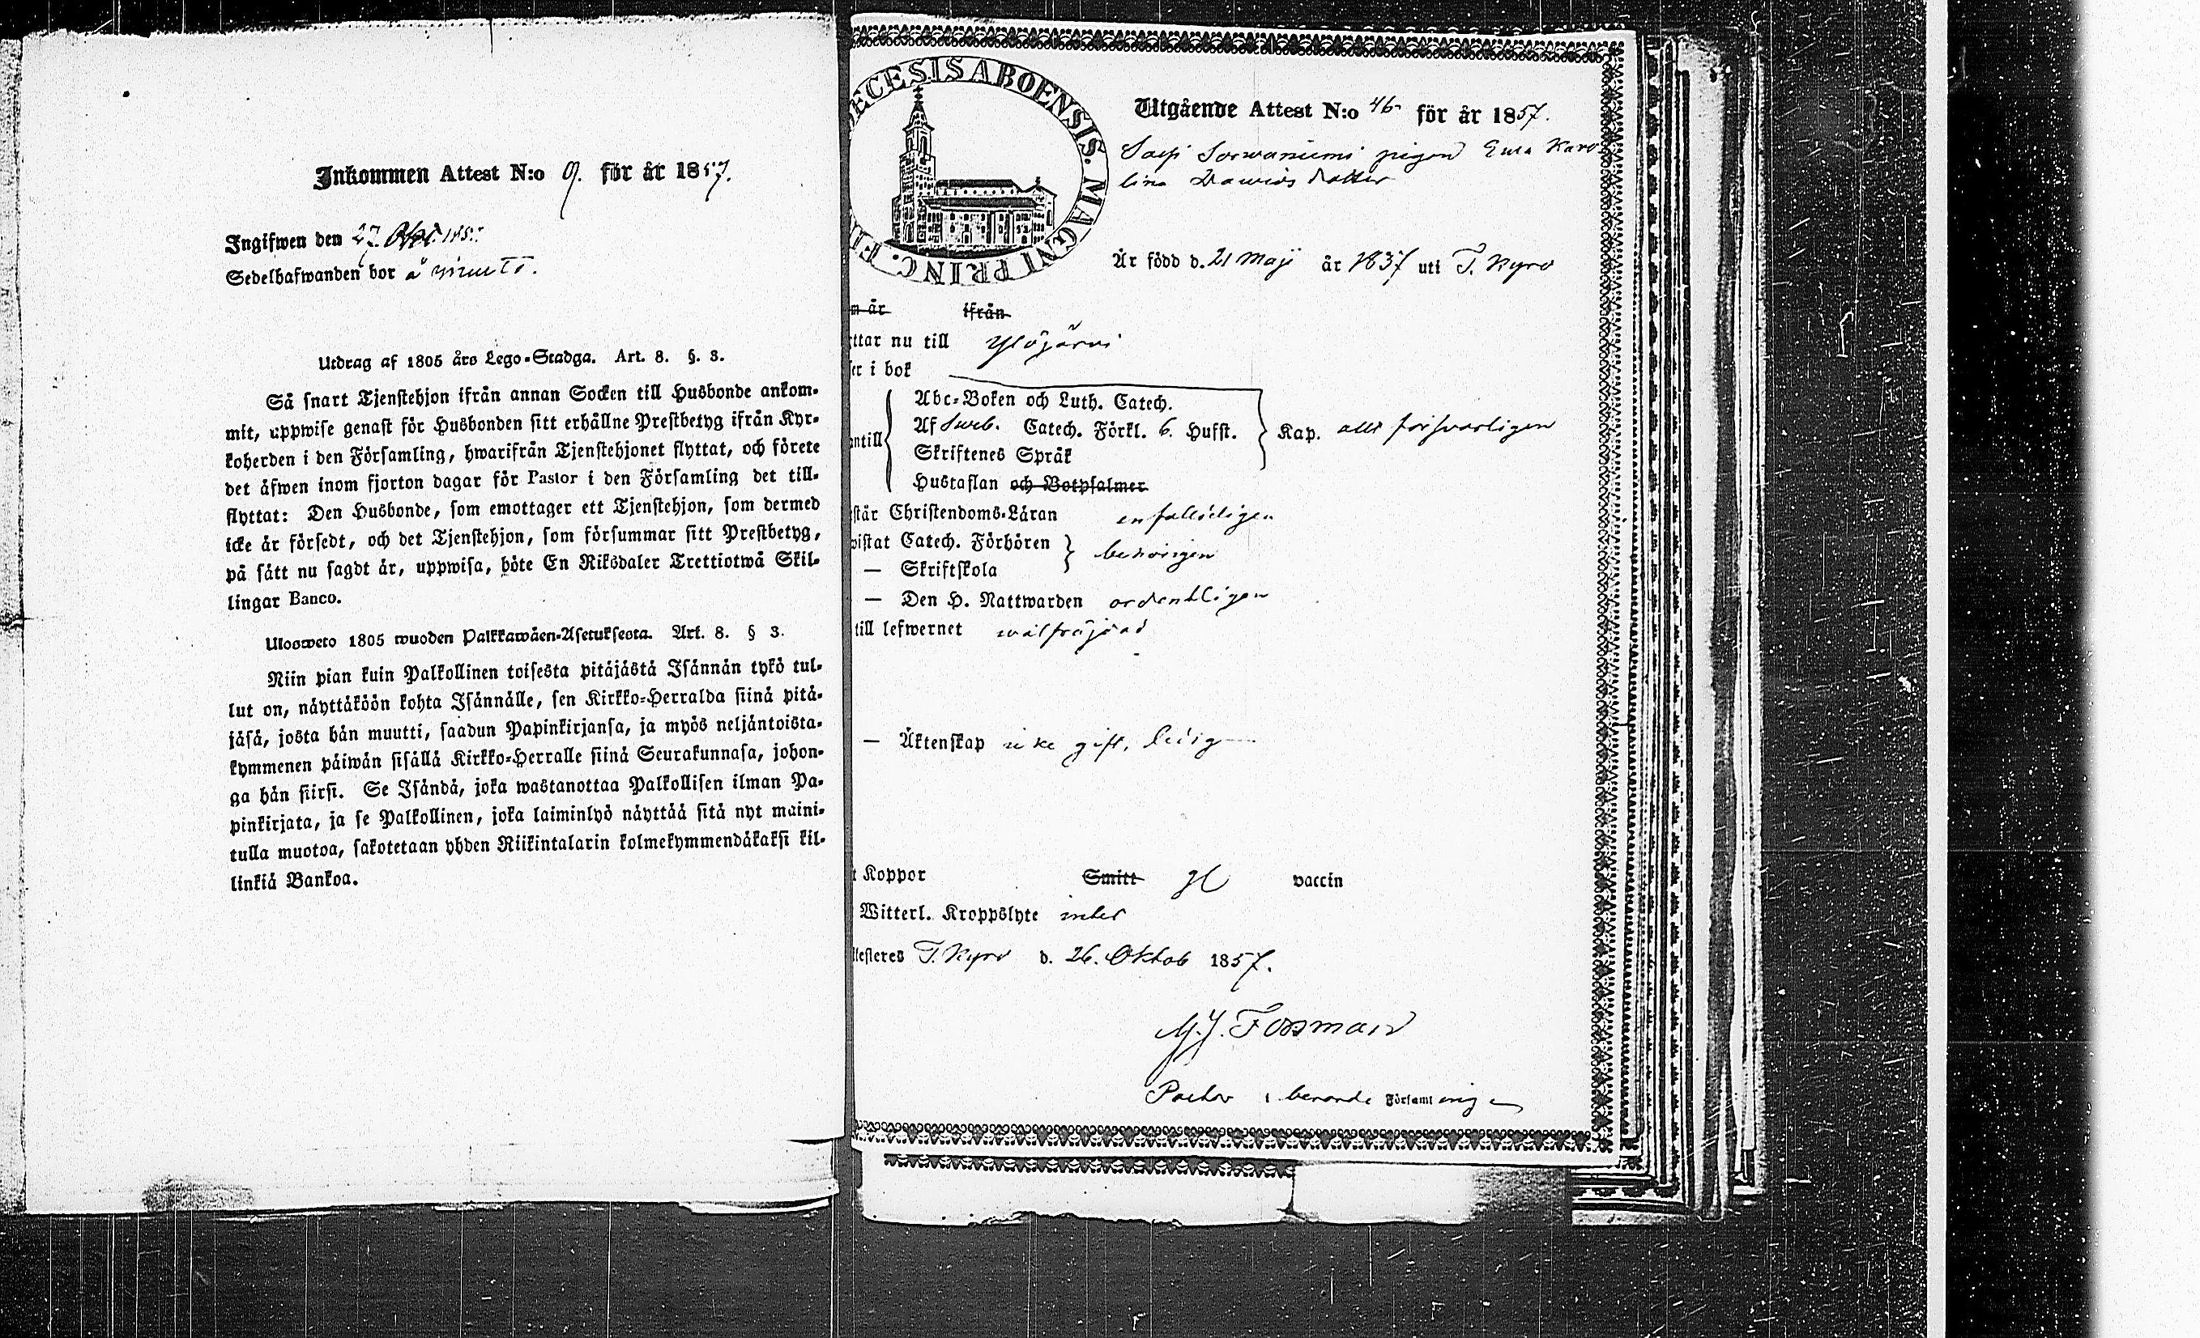 Inkommen Attest N:o 9. för år 1857.
Ingifwen den 27 1857
Sedelhafwanden bor å
Utdrag af 1805 års Lego-Stadga. Art. 8. §. 3.
Så snart Tjenstehjon ifrån annan Socken till Husbonde ankom-
mit, uppwise genast för Husbonden sitt erhållne Prestbetyg ifrån Kyr-
koherden i den Församling, hwarifrån Tjenstehjonet flyttat, och förete
det äfwen inom fjorton dagar för Pastor i den Församling det till-
flyttat: Den Husbonde, som emottager ett Tjenstehjon, som dermed
icke är försedt, och det Tjenstehjon, som försummar sitt Prestbetyg,
på sätt nu sagdt är, uppwisa, böte En Riksdaler Trettiotwå Skil-
lingar Banco.
Ulosweto 1805 wuoden Palkkawäen-Asetuksesta. Art. 8. § 3.
Niin pian kuin Palkollinen toisesta pitäjästä Isännän tykö tul-
lut on, näyttäköön kohta Isännälle, sen Kirkko-Herralda siinä pitä-
jäsä, josta hän muutti, saadun Papinkirjansa, ja myös neljäntoista-
kymmenen päiwän sisällä Kirkko-Herralle siinä Seurakunnasa, johon-
ga hän siirsi. Se Isändä, joka wastanottaa Palkollisen ilman Pa-
pinkirjata, ja se Palkollinen, joka laiminlyö näyttää sitä nyt maini-
tulla muotoa, sakotetaan yhden Riikintalarin kolmekymmendäkaksi kil-
linkiä Bankoa.
ECESIS ABOENSIS. MAGNI PRINC. FI
Utgående Attest N:o 46 för år 1857.
Sorwaniemi pigan Ewa Karo
lina Dawids dotter
Är född d. 21 Maji år 1837 uti T. Kyro
m år ifrån
ttar nu till Ylöjärvi
er i bok
Abc-Boken och Luth. Catech.
Af Sweb. Catech. Förkl. 6. Hufst.
ntill Kap. allt försvarligen
Skriftenes Språk
Hustaflan och Botpsalmer
står Christendoms-Läran enfaldeligen
wistat Catech. Förhören behörigen
— Skriftskola
— Den H. Nattwarden ordentligen
till lefwernet wälfrejdad
— Äktenskap icke gift, ledig
t Koppor Smitt vaccin
Witterl. Kroppslyte intet
ttesteres T. Kyro d. 26. Oktob 1857.
M. J. Forsman
Pastor i berörde Församlingen